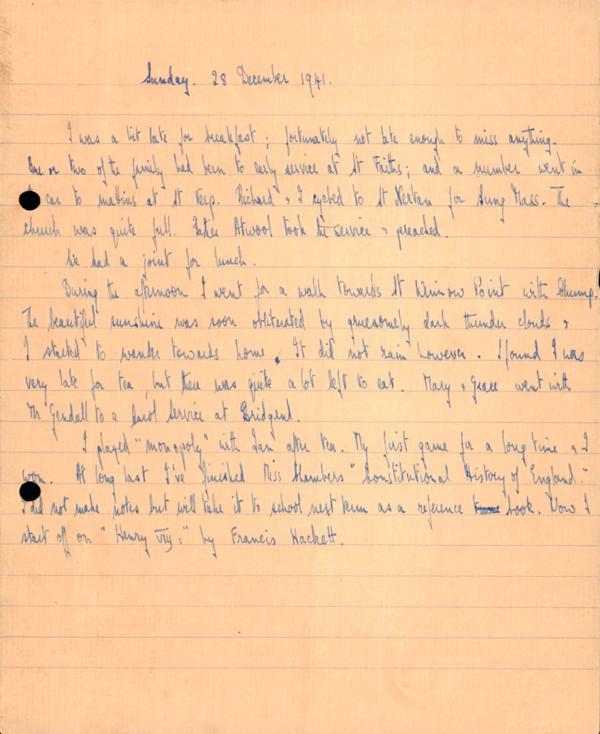 Sunday. 28 December 1941.
I was a bit late for breakfast; fortunately not late enough to miss anything.
One or two of the family had been to early service at St Faiths; and a number went in
car to mattins at St Kerp. Richard & I cycled to St Nectan for Sung Mass. The
church was quite full. Father Atwool took the service & preached.
We had a joint for lunch.
During the afternoon I went for a walk towards St Winnow Point with Chump.
The beautiful sunshine was soon obliterated by gruesomely dark thunder clouds &
I started to wander towards home. It did not rain however. I found I was
very late for tea, but there was quite a lot left to eat. Mary & Grace went with
Mr Gendall to a Carol Service at Bridgend.
I played "monopoly" with Ian after tea. My first game for a long time & I
won. At long last I've finished Miss Chambers "Constitutional History of England."
I did not make notes but will take it to school next term as a reference book. Now I
start off on "Henry VIII:" by Francis Hackett.